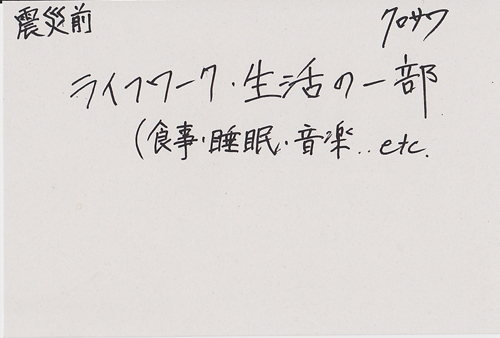 震災前
クロサワ
ライフワーク・生活の一部
(食事・睡眠・音楽..etc.